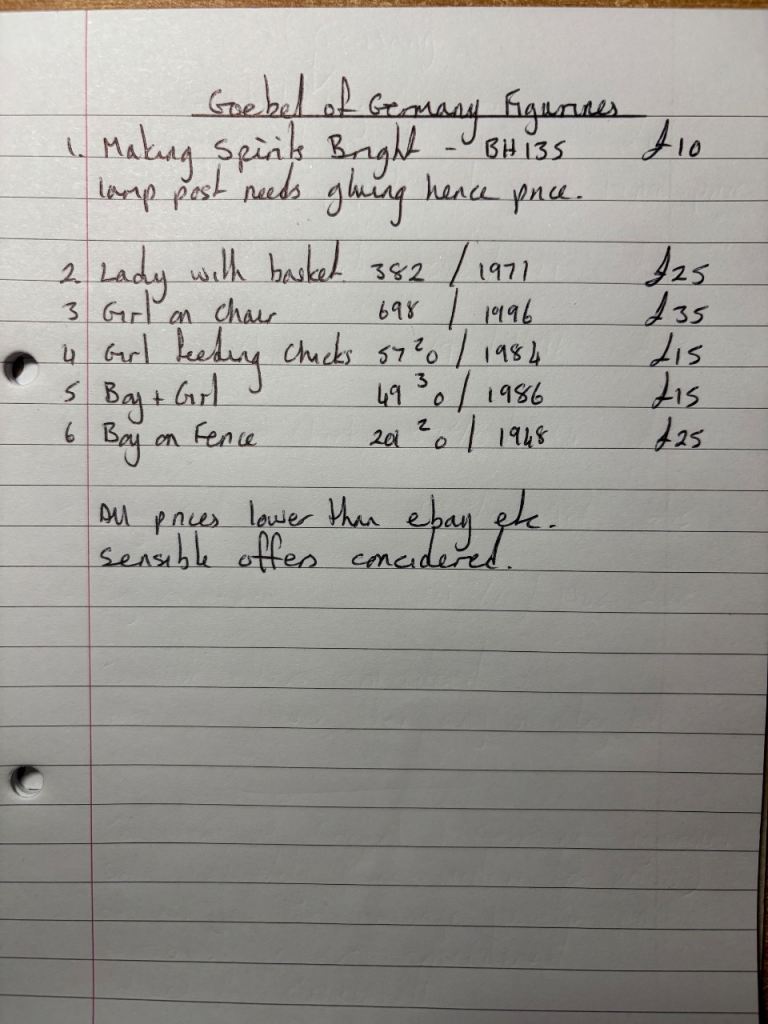 Goebel of Germany Figurines
1. Making Spirits Bright - BH135 £10
lamp post needs gluing hence price.
2 Lady with basket 382 / 1971 £25
3 Girl on Chair 698 / 1996 £35
4 Girl feeding Chicks 57²0 / 1984 £15
5 Boy + Girl 49³0 / 1986 £15
6 Boy on Fence 201²0 / 1948 £25
All prices lower than ebay etc.
Sensible offers concidered.